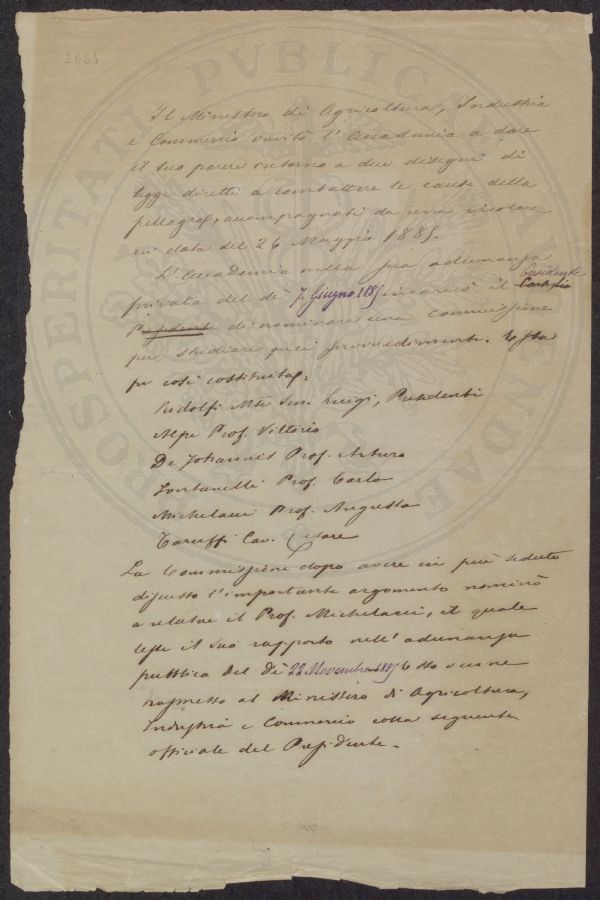 1684
PROSPERITATI PUBLICAE AUGENDAE
Il Ministero di Agricoltura, Industria
e Commercio invitò l'Accademia a dare
il suo parere intorno a due disegni di
legge diretti a combattere le cause della
pellagra, accompagnati da una circolare
in data del 26 Maggio 1885.
L'Accademia nella sua adunanza
privata del dì 7. Giugno 1885 incaricò il Presidente
Presidente di nominare una commissione
per studiare quei provvedimenti. Essa
fu così costituita.
Ridolfi Mse Sen. Luigi, Presidente
Alpe Prof. Vittorio
De Johannis Prof. Arturo
Fontanelli Prof. Carlo
Michelacci Prof. Augusto
Taruffi Cav. Cesare
La Commissione dopo avere in più sedute
discusso l'importante argomento nominò
a relatore il Prof. Michelacci, il quale
lesse il suo rapporto nell'adunanza
pubblica del dì 22 Novembre 1885 Esso venne
trasmesso al Ministero di Agricoltura,
Industria e Commercio colla seguente
officiale del Presidente.